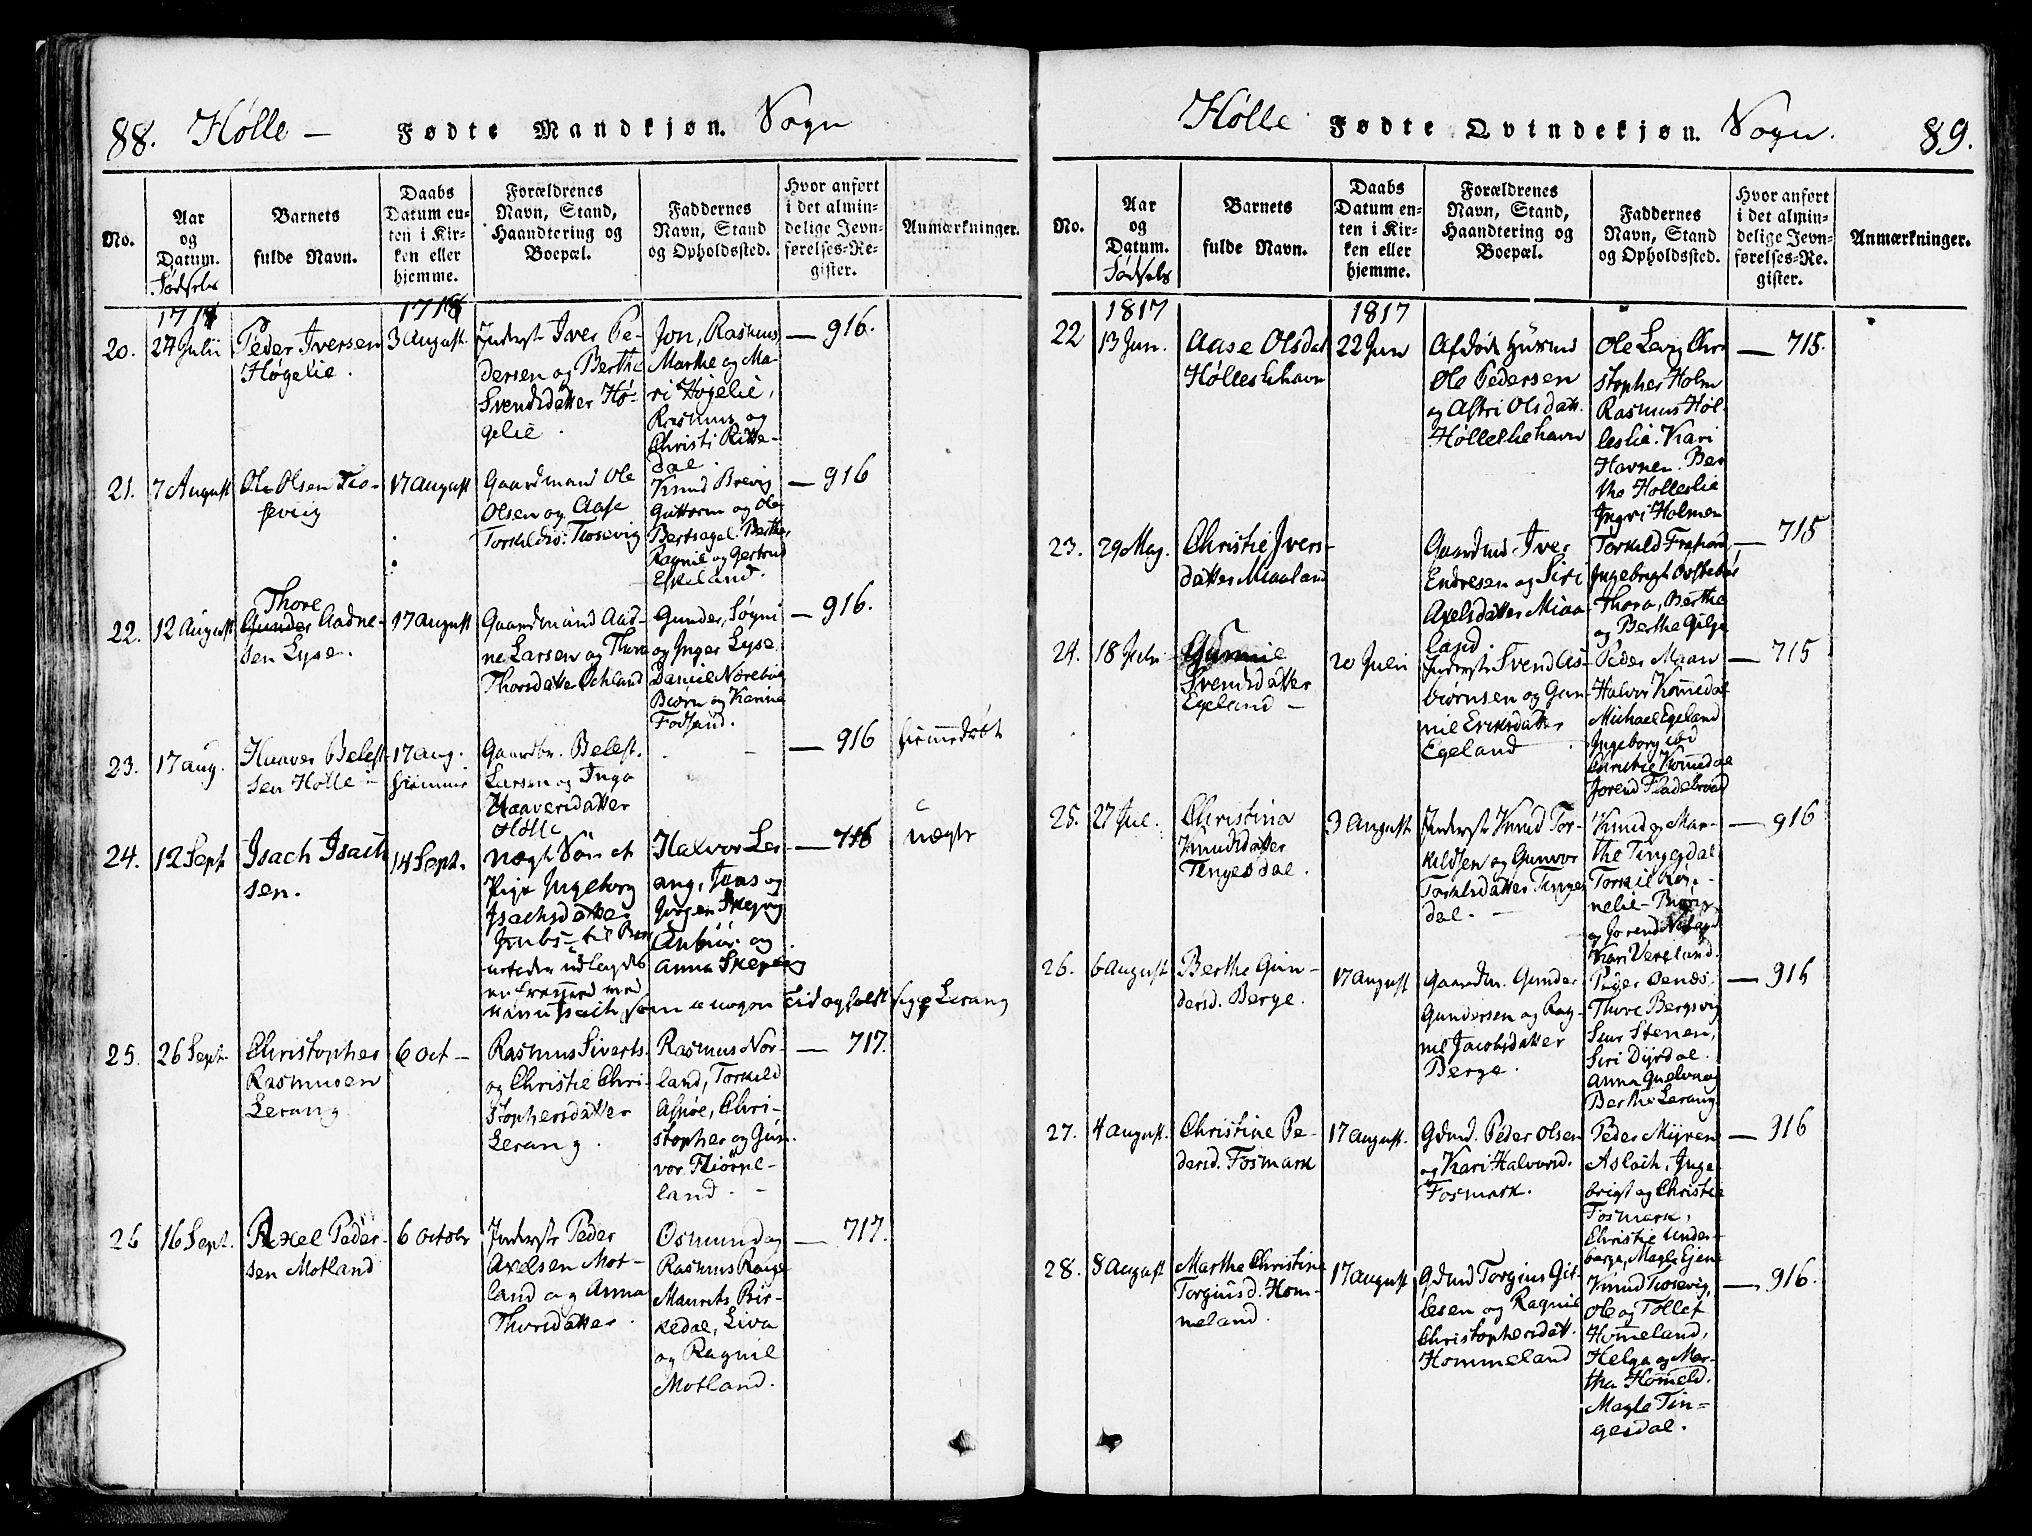 88. Hølle — Fødte Mandkjøn. Sogn
No.
Aar
og
Datum.
Fødsels
Barnets
fulde Navn.
Daabs
Datum en-
ten i Kir-
ken eller
hjemme.
Forældrenes
Navn, Stand,
Haandtering og
Boepæl.
Faddernes
Navn, Stand
og Opholdssted.
Hvor anført
i det almin-
delige Jevn-
førelses-Re-
gister.
Anmærkninger.
20.
27 Julii
Peder Iversen
Høgelie.
3 August
Inderst Iver Pe-
dersen og Berthe
Svendsdatter Hø-
gelie.
Jon, Rasmus,
Marthe og Ma-
ri Høgelie,
Rasmus og
Christi
dal.
— 916.
21.
7 August
Ole Olsen Tio-
sevig
17 August
Gaardmand Ole
Olsen og Aase
Torkilds: Tiosevig
Knud Brevig
Guttorm og Ole
Bertsagel. Berthe,
Ragnil og Gertrud
Eskeland.
— 916
22.
12 August
Thore
Gunder Aadne-
sen Lyse.
17 August
Gaardmand Aad-
ne Larsen og Thore
Thorsdatter
Gunder, Søgni
og Inger Lyse
Daniel
Biørn og Karine
Fodland.
— 916.
23.
17 Aug.
Haaver Belest-
sen Hølle
17 Aug.
hiemme
Gaardbr. Belest
Larsen og Inga
Haaversdatter
Hølle
— 916
hiemmedøbt
24.
12 Sept
Isach Isach
sen.
14 Sept.
Uægt. Søn af
Pige Ingeborg
Isachsdatter
til Bar
udlagdes
med
Navn Isach, som nogen Tid opholdt sig p Lerang
Halvor Ler-
ang, Jens og
Jørgen
og
Anna
— 716
uægte
25.
26 Sept
Christopher
Rasmusen
Lerang
6 Oct —
Rasmus Siverts.
og Christie Chri-
stophersdatter
Lerang.
Rasmus Nor-
land, Torkild
Asøe, Chri-
stopher og Gun-
vor Fliørpe-
land.
— 717.
26
16 Sept.
Axel Peder-
sen Motland
6 Octobr
Inderst Peder
Axelsen Mot-
land og Anna
Thorsdatter.
Osmund og
Rasmus Rage
Maurits Bir-
kedal, Liva
og Ragnil
Motland.
— 717.
Hølle Fødte Qvindekjøn. Sogn. 89.
No.
Aar
og
Datum.
Fødsels
Barnets
fulde Navn.
Daabs
Datum en-
ten i Kir-
ken eller
hjemme.
Forældrenes
Navn, Stand,
Haandtering og
Boepæl.
Faddernes
Navn, Stand
og Opholdssted.
Hvor anført
i det almin-
delige Jevn-
førelses-Re-
gister.
Anmærkninger.
1817
1817
22
13 Jun.
Aase Olsdat
Høllesh havn
22 Jun
Afdøde Huusmd
Ole Pedersen
og Astri Olsdatt.
Høllesle havn
Ole Chri
stopher Holm
Rasmus Høl-
leslie. Kari
Havnen. Ber
the Holleslie
Ingri Holmen
— 715.
23.
29 May.
Christie Ivers-
datter Miaaland
Gaardmd Iver
Endresen og Siri
Axelsdatter Miaa
land
Torkild
Ingebrigt
Thora, Berthe
og Berthe Gilje
— 715
24.
18 Juli
Gunnil
Svendsdatter
Egeland —
20 Juli
Inderst Svend As-
biørnsen og Gun
nil Eriksdatter
Egeland
Peder Maan
Halvor Komedal
Michael Egeland
Ingeborg
Christie Komedal
Jorend Fladebrød
— 715
25.
27 Jul.
Christina
Knudsdatter
Tingesdal.
3 August
Inderst Knud Tor-
kildsen og Gunvor
Torkilsdatter Tinges
dal. —
Knud og Mar-
the Tingesdal
Torkil
og Jorend
Kari Versland
— 916
26.
6 August
Berthe Gun-
dersd. Berge.
17 August
Gaardm. Gunder
Gundersen og Rag-
nil Jacobsdatter
Berge.
Peder
Thore Bergsvig
Stenen,
Siri Dyrdal.
Anna
Berthe Lerang
— 916
27.
4 August.
Christine Pe-
dersd. Fosmark
17 August.
Gdmd. Peder Olsen
og Kari Halvorsd.
Fosmark.
Peder Myren
Aslach, Inge-
brigt og Christie
Fosmark,
Christie Under-
berge, Magle Ejene
— 916
28.
8 August
Marthe Christine
Torgiusd. Hom-
meland.
17 August
Gdmd Torgius Git-
lesen og Ragnil
Christophersdatt.
Hommeland
Knud Tiosevig,
Ole og Tollef
Homeland,
Helga og Mar-
tha Homeld.
Magla Tin-
gesdal.
— 916.